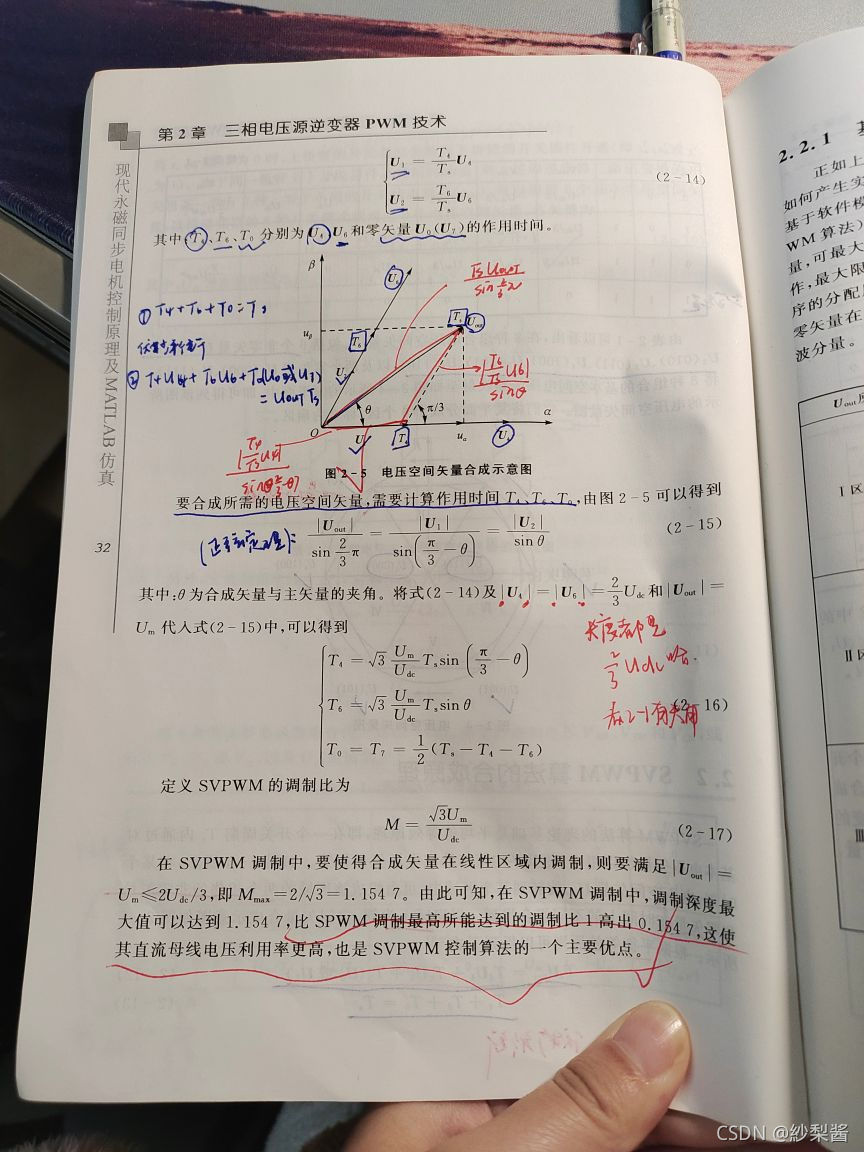 第 2 章 三相电压源逆变器 PWM 技术
现代永磁同步电机控制原理及 MATLAB 仿真
32
U₁ = T₄/Tₛ U₄
U₂ = T₆/Tₛ U₆
(2-14)
其中:T₄、T₆、T₀ 分别为 U₄ U₆ 和零矢量 U₀(U₇)的作用时间。
① T4+T6+T0=Ts
② T4U4+T6U6+T0(U0或U7)
=UoutTs
β
U₆
T₆
uβ
U₂
Tₛ
Uout
θ
π/3
O
U
T₄
uα
U₄
α
TsUout/sin⅔π
|T6/Ts U6|/sinθ
|T4/Ts U4|
图 2-5 电压空间矢量合成示意图
要合成所需的电压空间矢量,需要计算作用时间 T₄、T₆、T₀,由图 2-5 可以得到
|Uout|/sin(2/3)π = |U₁|/sin(π/3 − θ) = |U₂|/sinθ
(2-15)
其中:θ为合成矢量与主矢量的夹角。将式(2-14)及|U₄|=|U₆|=2/3 Udc和|Uout|=
Um 代入式(2-15)中,可以得到
长度都是
2/3 Udc
T₄ = √3 Um/Udc Tₛ sin(π/3 − θ)
T₆ = √3 Um/Udc Tₛ sinθ
(2-16)
T₀ = T₇ = 1/2 (Tₛ − T₄ − T₆)
定义 SVPWM 的调制比为
M = √3Um/Udc
(2-17)
在 SVPWM 调制中,要使得合成矢量在线性区域内调制,则要满足|Uout|=
Um≤2Udc/3,即 Mmax=2/√3=1.154 7。由此可知,在 SVPWM 调制中,调制深度最
大值可以达到 1.154 7,比 SPWM 调制最高所能达到的调制比 1 高出 0.154 7,这使
其直流母线电压利用率更高,也是 SVPWM 控制算法的一个主要优点。
2.2.1
正如上
如何产生实
基于软件模
WM 算法)
量,可最大
作,最大限
序的分配
零矢量在
波分量。
Uout
Ⅰ区
Ⅱ区
Ⅲ
CSDN @紗梨酱